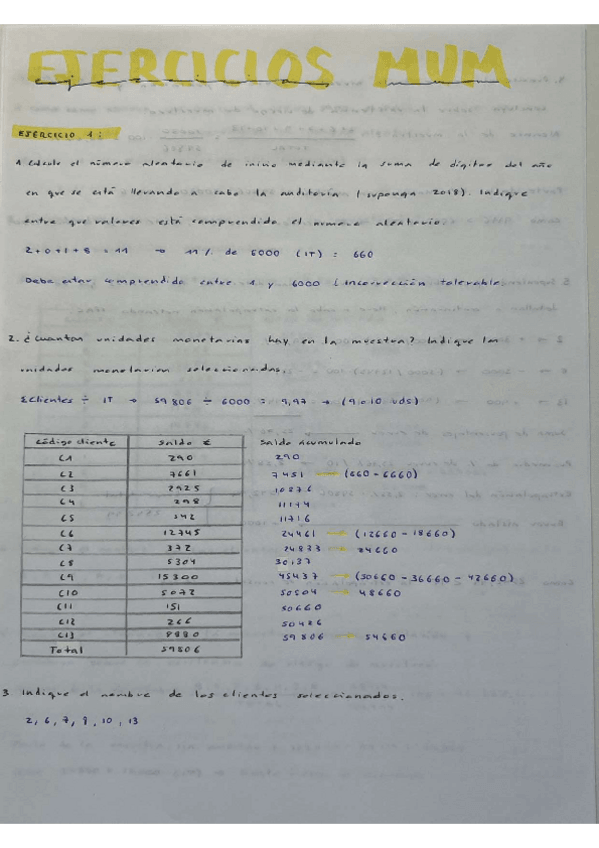 EJERCICIOS MUM
EJERCICIO 1:
1. Calcule el número aleatorio de inicio mediante la suma de dígitos del año
en que se está llevando a cabo la auditoría (suponga 2018). Indique
entre que valores está comprendido el número aleatorio.
2+0+1+8 = 11 → 11 % de 6000 (IT) = 660
Debe estar comprendido entre 1 y 6000 (incorrección tolerable
2. ¿Cuantas unidades monetarias hay en la muestra? Indique las
unidades monetarias seleccionadas.
ΣClientes ÷ IT → 59806 ÷ 6000 = 9,97 → (9 o 10 uds)
Código cliente Saldo € Saldo Acumulado
C1 290 290
C2 7661 7451 → (660 - 6660)
C3 2925 10876
C4 298 11174
C5 542 11716
C6 12745 24461 → (12660 - 18660)
C7 372 24833 → 24660
C8 5304 30137
C9 15300 45437 → (30660 - 36660 - 42660)
C10 5072 50504 → 48660
C11 151 50660
C12 266 50486
C13 8880 59806 → 54660
Total 59806
3. Indique el nombre de los clientes seleccionados.
2, 6, 7, 9, 10, 13